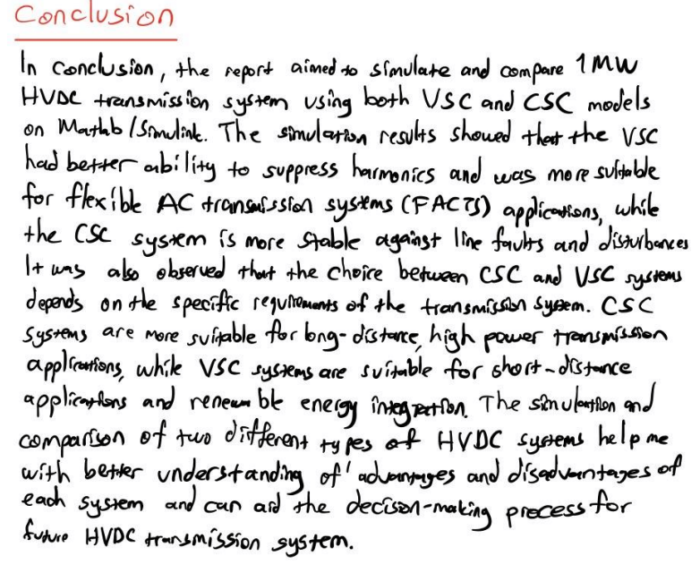 Conclusion
In Conclusion, the report aimed to simulate and compare 1MW
HVDC transmission system using both VSC and CSC models
on Matlab/Simulink. The simulation results showed that the VSC
had better ability to suppress harmonics and was more suitable
for flexible AC transmission systems (FACTS) applications, while
the CSC system is more stable against line faults and disturbances
It was also observed that the choice between CSC and VSC systems
depends on the specific requirements of the transmission system. CSC
systems are more suitable for long-distance, high power transmission
applications, while VSC systems are suitable for short-distance
applications and renewable energy integration. The simulation and
comparison of two different types of HVDC systems help me
with better understanding of advantages and disadvantages of
each system and can aid the decision-making process for
future HVDC transmission system.